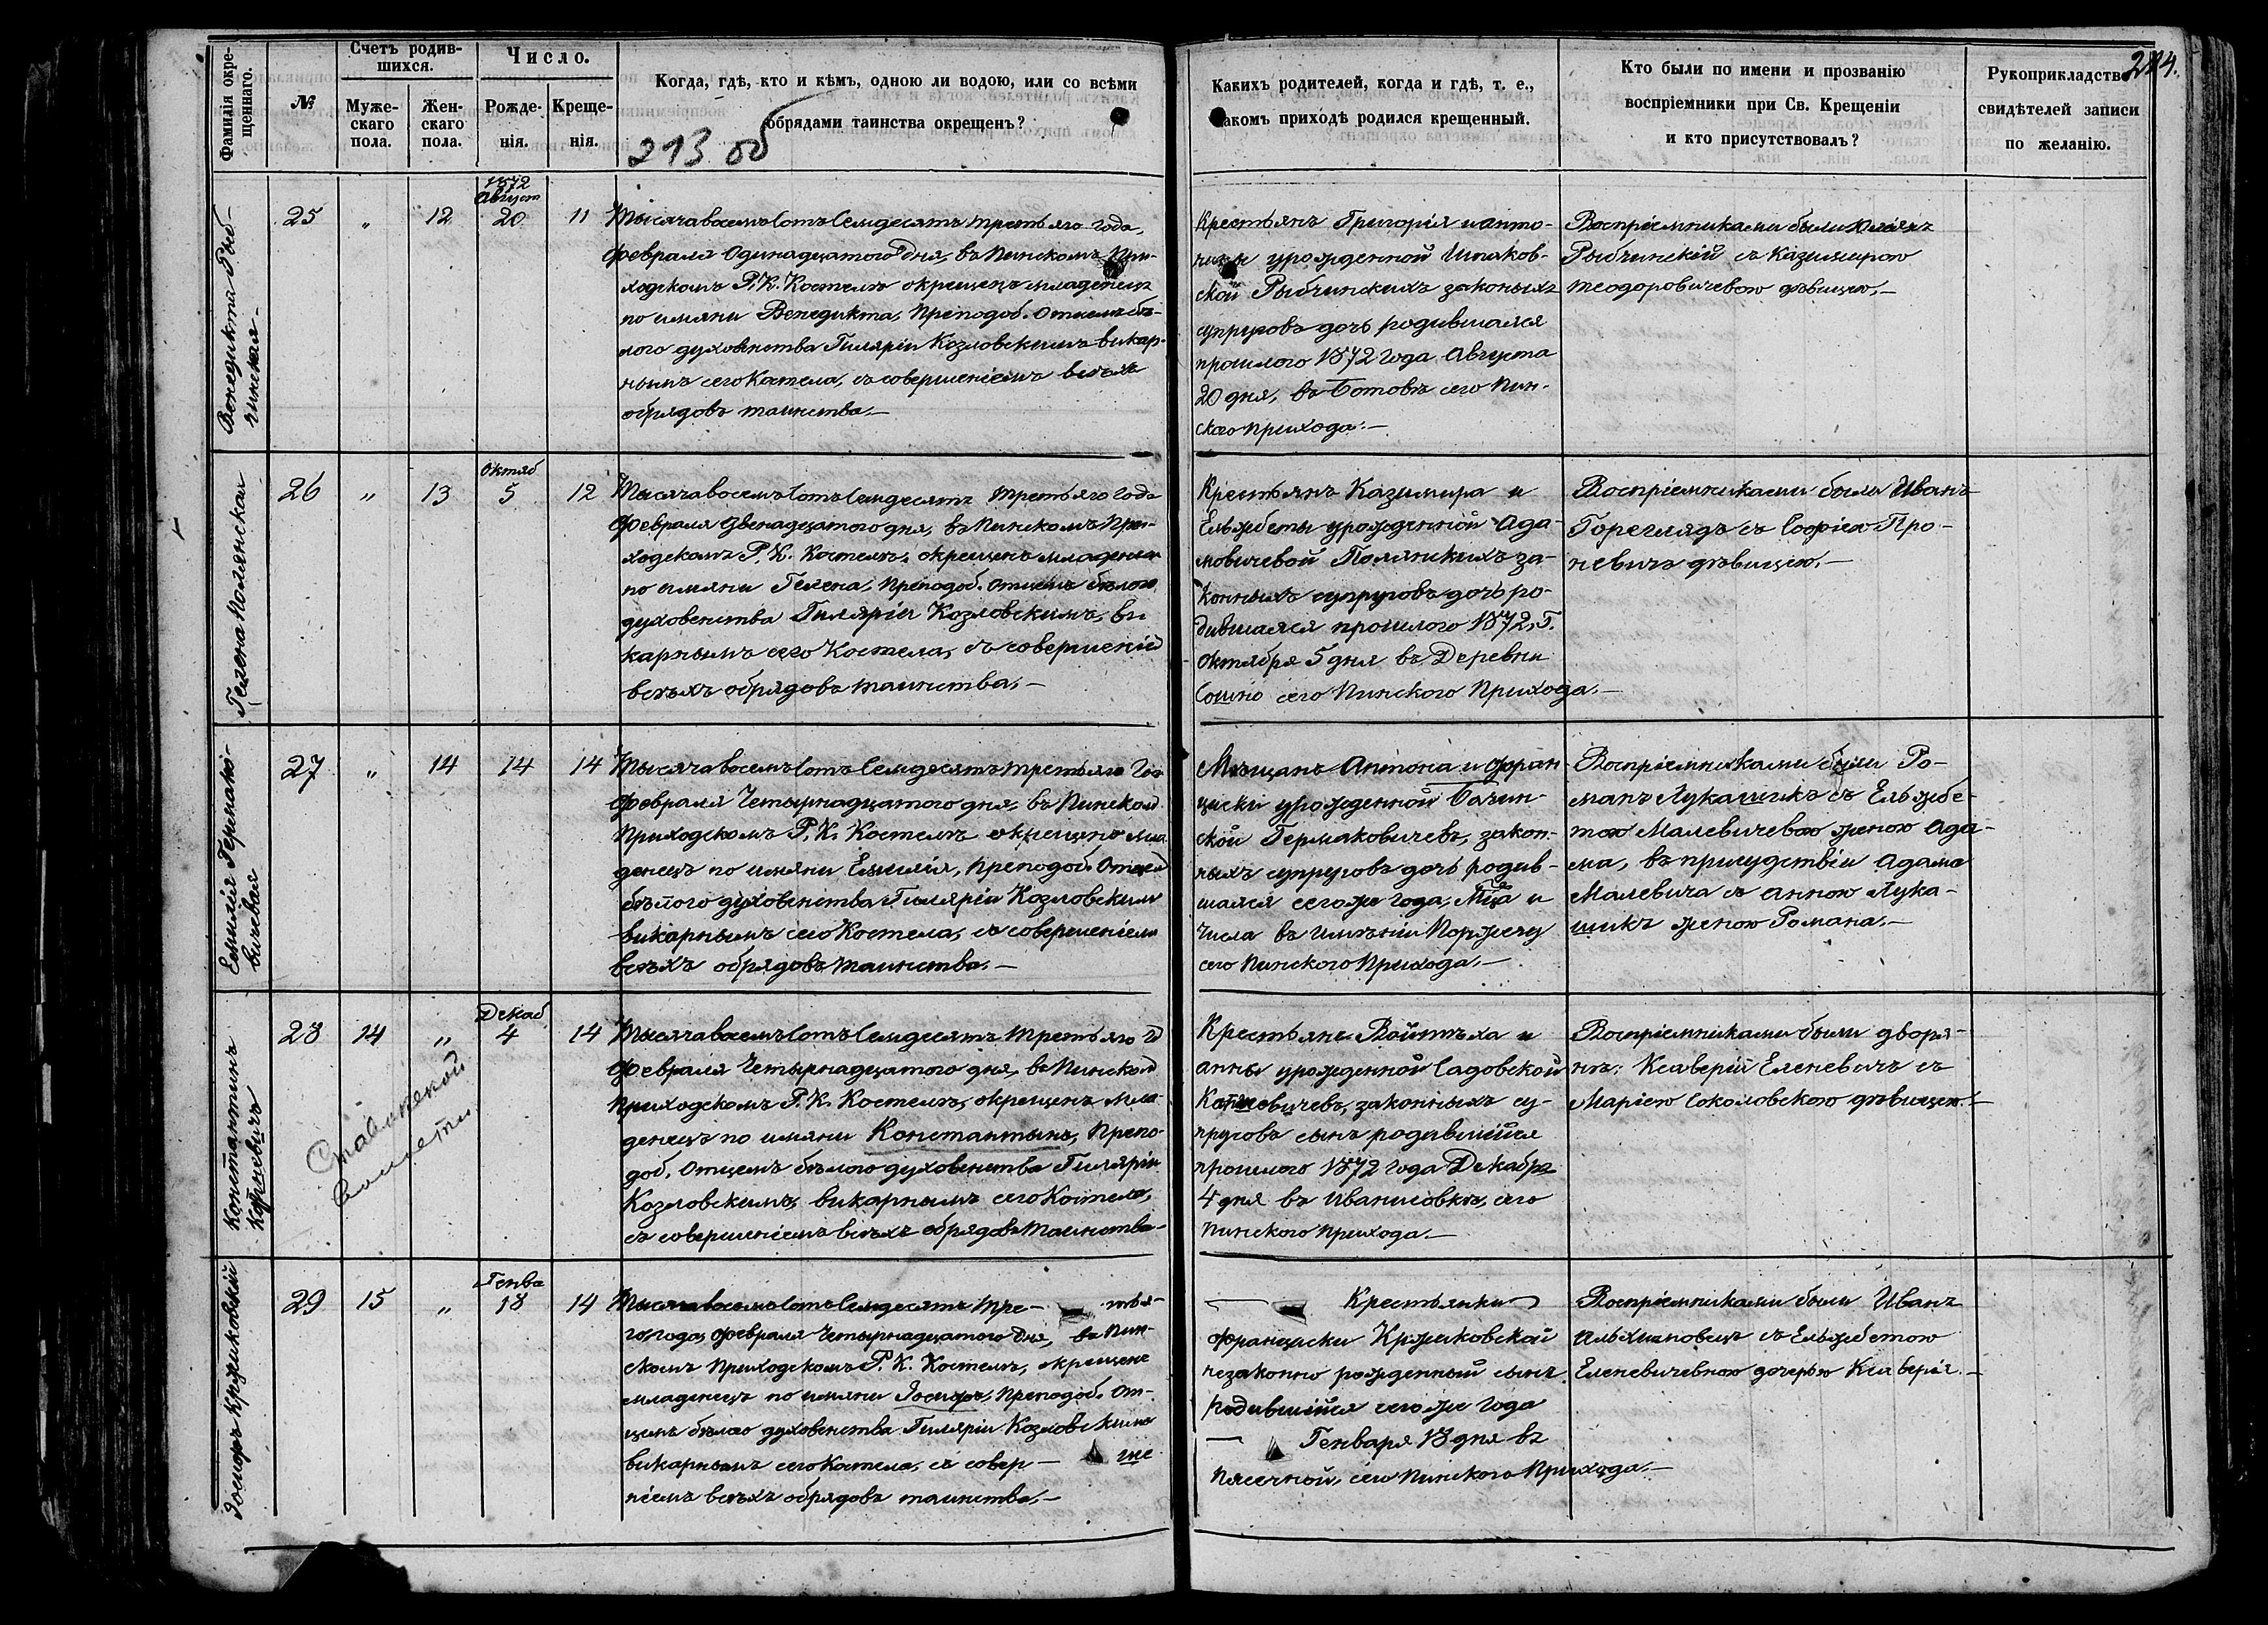 Фамилія окре-
щеннаго.
№
Счетъ родив-
шихся.
Муже-
скаго
пола.
Жен-
скаго
пола.
Число.
Рожде-
нія.
Креще-
нія.
Когда, гдѣ, кто и кѣмъ, одною ли водою, или со всѣми
обрядами таинства окрещенъ?
213 об
Какихъ родителей, когда и гдѣ, т. е.,
какомъ приходѣ родился крещенный.
Кто были по имени и прозванію
воспріемники при Св. Крещеніи
и кто присутствовалъ?
Рукоприкладств
свидѣтелей записи
по желанію.
214.
Венедикта Рыб-
чинская
25
"
12
1872
Август
20
11
Тысяча восемь сотъ семдесятъ третьяго года,
Февраля Одинадцатого Дня, въ Пинскомъ При-
ходскомъ Р. К. Костелѣ окрещенъ младенецъ
по имяни Венедикта, Преподоб. Отцемъ бѣ-
лого духовенства Гиляріи Козловскимъ викар-
нымъ сего Костела, съ совершеніемъ всѣхъ
обрядовъ таинства.—
Крестьянъ Григорія и Анто-
нины урожденной Шпаков-
ской Рыбчинскихъ законыхъ
супруговъ дочь родившаяся
прошлого 1872 года Августа
20 дня, въ Ботовѣ сего Пин-
ского Прихода.—
Воспріемниками были Юліянъ
Рыбчинскій съ Казимирою
Теодоровичевою дѣвицею.—
Гелена Полянская
26
"
13
Октяб
5
12
Тысяча восемь сотъ семдесятъ третьяго года
Февраля двенадцатого дня, въ Пинскомъ При-
ходскомъ Р. К. Костелѣ, окрещенъ младенец
по имяни Гелена, Преподоб. Отцемъ бѣлого
духовенства Гиляріи Козловскимъ, ви-
карнымъ сего Костела, съ совершеніем
всѣхъ обрядовъ таинства.—
Крестьянъ Казимира и
Ельжбеты урожденной Ада-
мовичевой Полянскихъ за-
конныхъ супруговъ дочь ро-
дившаяся прошлого 1872 Г.
Октября 5 дня въ Деревни
Сошно сего Пинского Прихода.—
Воспріемниками были Иванъ
Гореглядъ съ Софіею Про-
невичъ дѣвицею.—
Емилія Термако-
вичевая
27
"
14
14
14
Тысяча восемь сотъ семдесятъ третьяго Год
Февраля Четырнадцатого дня, въ Пинском
Приходскомъ Р. К. Костелѣ окрещено мла
денецъ по имяни Емилія, Преподоб. Отцем
бѣлого духовенства Гиляріи Козловским
викарнымъ сего Костела, съ совершеніем
всѣхъ обрядовъ таинства.—
Мѣщанъ Антона и Фран-
циски урожденной Бачин-
ской Термаковичевъ, закон-
ныхъ супруговъ дочь родив-
шаяся сегожь года, Мца и
Числа въ имѣніи Порѣчу
сего Пинского Прихода.—
Воспріемниками были Ро-
манъ Лукашикъ съ Ельжбе-
тою Малевичевою женою Ада-
ма, въ присудствіи Адама
Малевича съ Анною Лука-
шикъ женою Романа.—
Константинъ
28
14
"
Декаб
4
14
Ставинской
волости
Тысяча восемь сотъ семдесятъ третьяго Го
Февраля Четырнадцатого дня, въ Пинском
Приходскомъ Р. К. Костелѣ, окрещенъ мла-
денецъ по имяни Константынъ, Препо-
доб. Отцемъ бѣлого духовенства Гиляріи
Козловскимъ, викарнымъ сего Костела,
съ совершеніемъ всѣхъ обрядовъ таинства—
Крестьянъ Войтѣха и
Анны урожденной Садовской
законныхъ су-
пруговъ сынъ родившійся
прошлого 1872 года Декабря
4 дня въ Иванисовкѣ, сего
Пинского Прихода.—
Воспріемниками были дворя-
нъ: Ксаверій Еленевичъ съ
Маріею Соколовскою дѣвицею.—
Іосифъ Кржиковскій
29
15
"
Генва
13
14
Тысяча восемь сотъ семдесятъ тре— тья-
го года, Февраля Четырнадцатого Дня, въ Пин-
скомъ Приходскомъ Р. К. Костелѣ, окрещенъ
младенецъ по имяни Іосифъ, Преподоб. От-
цемъ бѣлого духовенства Гиляріи Козловскимъ
викарнымъ сего Костела, съ совер— ше
ніемъ всѣхъ обрядовъ таинства.—
Крестьянки
Франциски Кржиковской
незаконно рожденный сынъ
родившійся сегожь года
Генваря 13 дня въ
Пясечной, сего Пинского Прихода.—
Воспріемниками были Иванъ
Альхимовецъ съ Ельжбетою
Еленевичевною дочерью Ксаверія.—